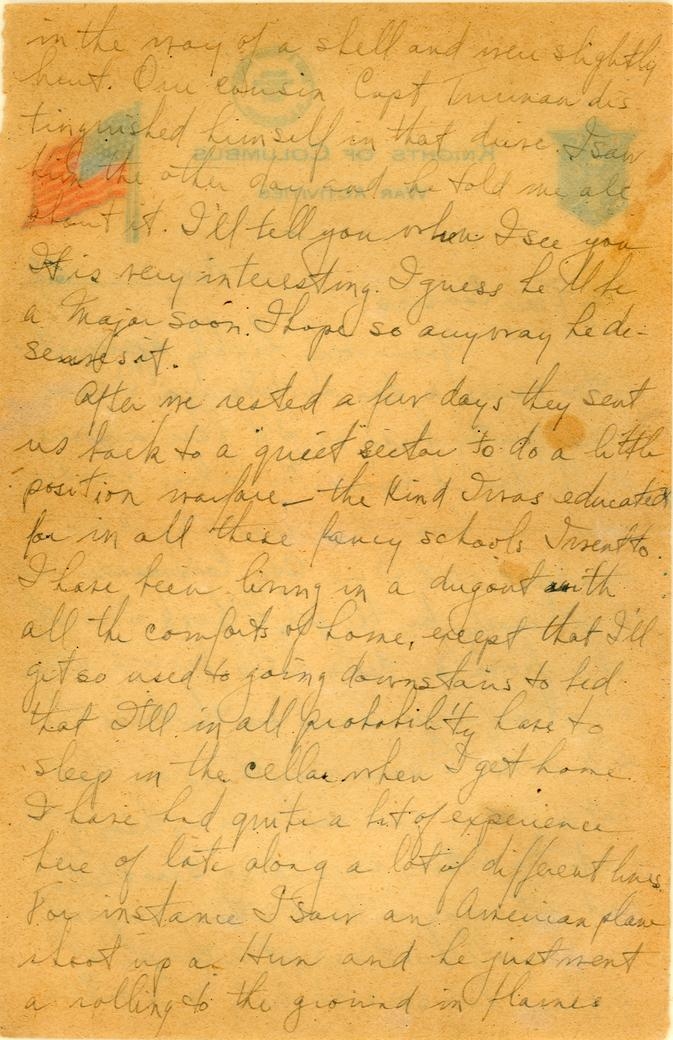 in the way of a shell and were slightly
hurt. Our cousin Capt Truman dis
tinguished himself in that drive. I saw
him the other day and he told me all
about it. I'll tell you when I see you
It is very interesting. I guess he'll be
a Major soon. I hope so anyway he de-
serves it.
After we rested a few days they sent
us back to a "quiet" sector to do a little
position warfare — the kind I was educated
for in all these fancy schools I went to.
I have been living in a dugout with
all the comforts of home, except that I'll
get so used to going downstairs to bed
that I'll in all probability have to
sleep in the cellar when I get home.
I have had quite a bit of experience
here of late along a lot of different lines.
For instance I saw an American plane
shoot up a Hun and he just went
a rolling to the ground in flames
KNIGHTS OF COLUMBUS
WAR ACTIVITIES